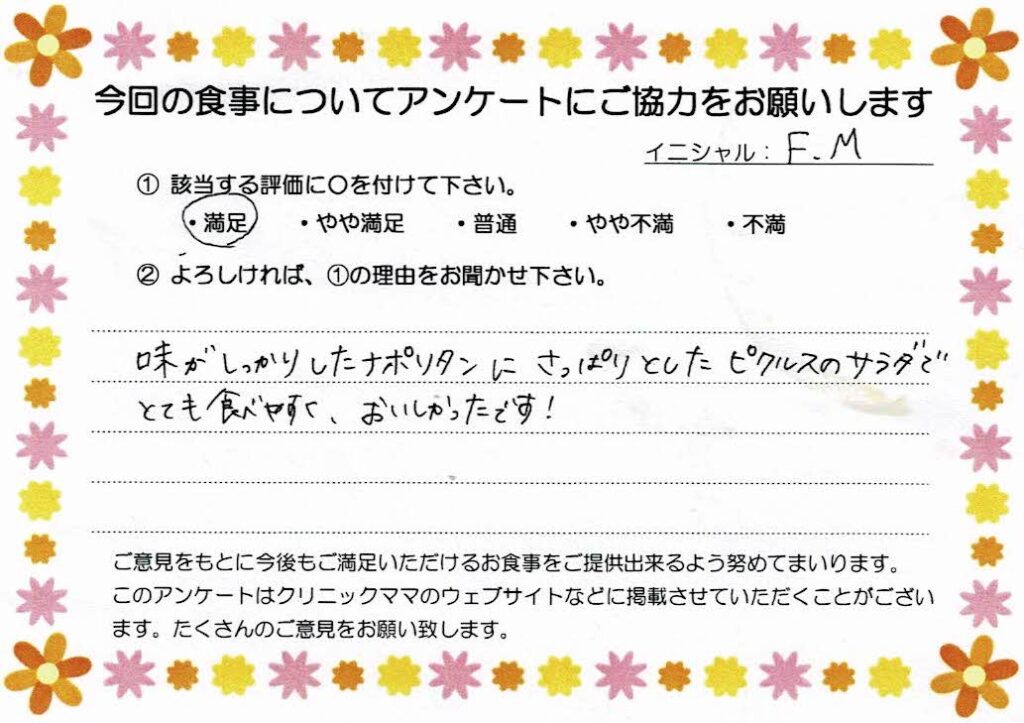 今回の食事についてアンケートにご協力をお願いします
イニシャル： F.M
① 該当する評価に〇を付けて下さい。
・満足 ・やや満足 ・普通 ・やや不満 ・不満
② よろしければ、①の理由をお聞かせ下さい。
味がしっかりしたナポリタンにさっぱりとしたピクルスのサラダで
とても食べやすく、おいしかったです！
ご意見をもとに今後もご満足いただけるお食事をご提供出来るよう努めてまいります。
このアンケートはクリニックママのウェブサイトなどに掲載させていただくことがござい
ます。たくさんのご意見をお願い致します。